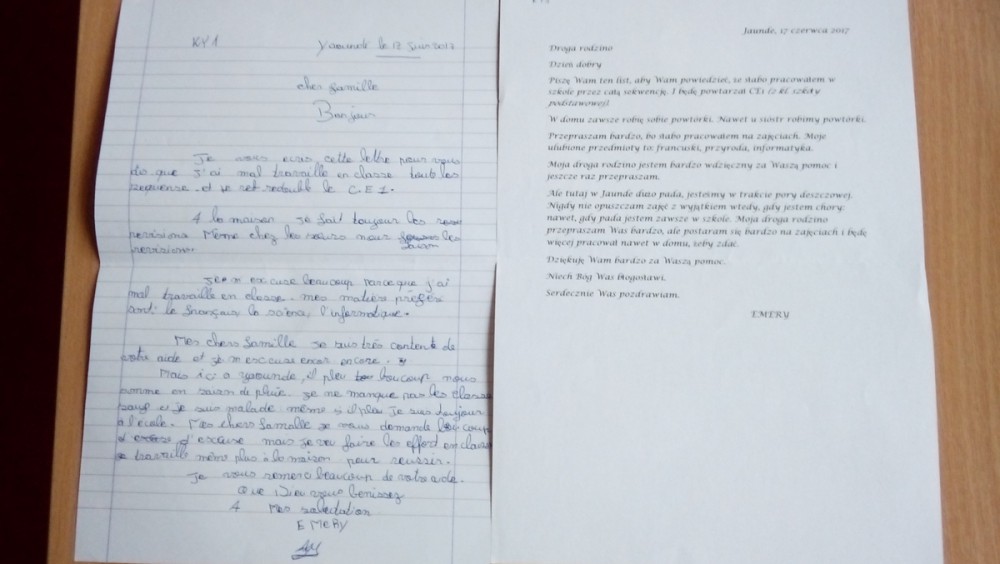 KY1
Yaounde le 17 Juin 2017
cher famille
Bonjour
Je vous ecris cette lettre pour vous
dis que j'ai mal travaille en classe toutes les
sequense et je
le C.E1.
A la maison je fait toujour les
revisions Même chez les sœurs nous les
revisions
excuse beaucoup parce que j'ai
mal travaille en classe. mes matiers préfére
sont le français la sciena, l'informatique.
Mes chers famille je suis très contente de
votre aide et je m'excuse encor encore.
Mais ici a yaounde, il pleu boucoup nous
somme en saison de pluie. je ne manque pas les classe
sauf si je suis malade même s'il pleu Je suis toujour
a l'école. Mes chers famille je vous demande boucoup
d'excuse mais je veu faire les effort en classe
travaille même plus à la maison pour reussir.
Je vous remerci beaucoup de votre aide.
Que Dieu vous benissez
Mes saludation
EMERY
Jaunde, 17 czerwca 2017
Droga rodzino
Dzień dobry
Piszę Wam ten list, aby Wam powiedzieć, że słabo pracowałem w
szkole przez całą sekwencję. I będę powtarzał CE1 (2 kl. szkoły
podstawowej)!
W domu zawsze robię sobie powtórki. Nawet u sióstr robimy powtórki.
Przepraszam bardzo, bo słabo pracowałem na zajęciach. Moje
ulubione przedmioty to: francuski, przyroda, informatyka.
Moja droga rodzino jestem bardzo wdzięczny za Waszą pomoc i
jeszcze raz przepraszam.
Ale tutaj w Jaunde dużo pada, jesteśmy w trakcie pory deszczowej.
Nigdy nie opuszczam zajęć z wyjątkiem wtedy, gdy jestem chory:
nawet, gdy pada jestem zawsze w szkole. Moja droga rodzino
przepraszam Was bardzo, ale postaram się bardzo na zajęciach i będę
więcej pracował nawet w domu, żeby zdać.
Dziękuję Wam bardzo za Waszą pomoc.
Niech Bóg Was błogosławi.
Serdecznie Was pozdrawiam.
EMERY